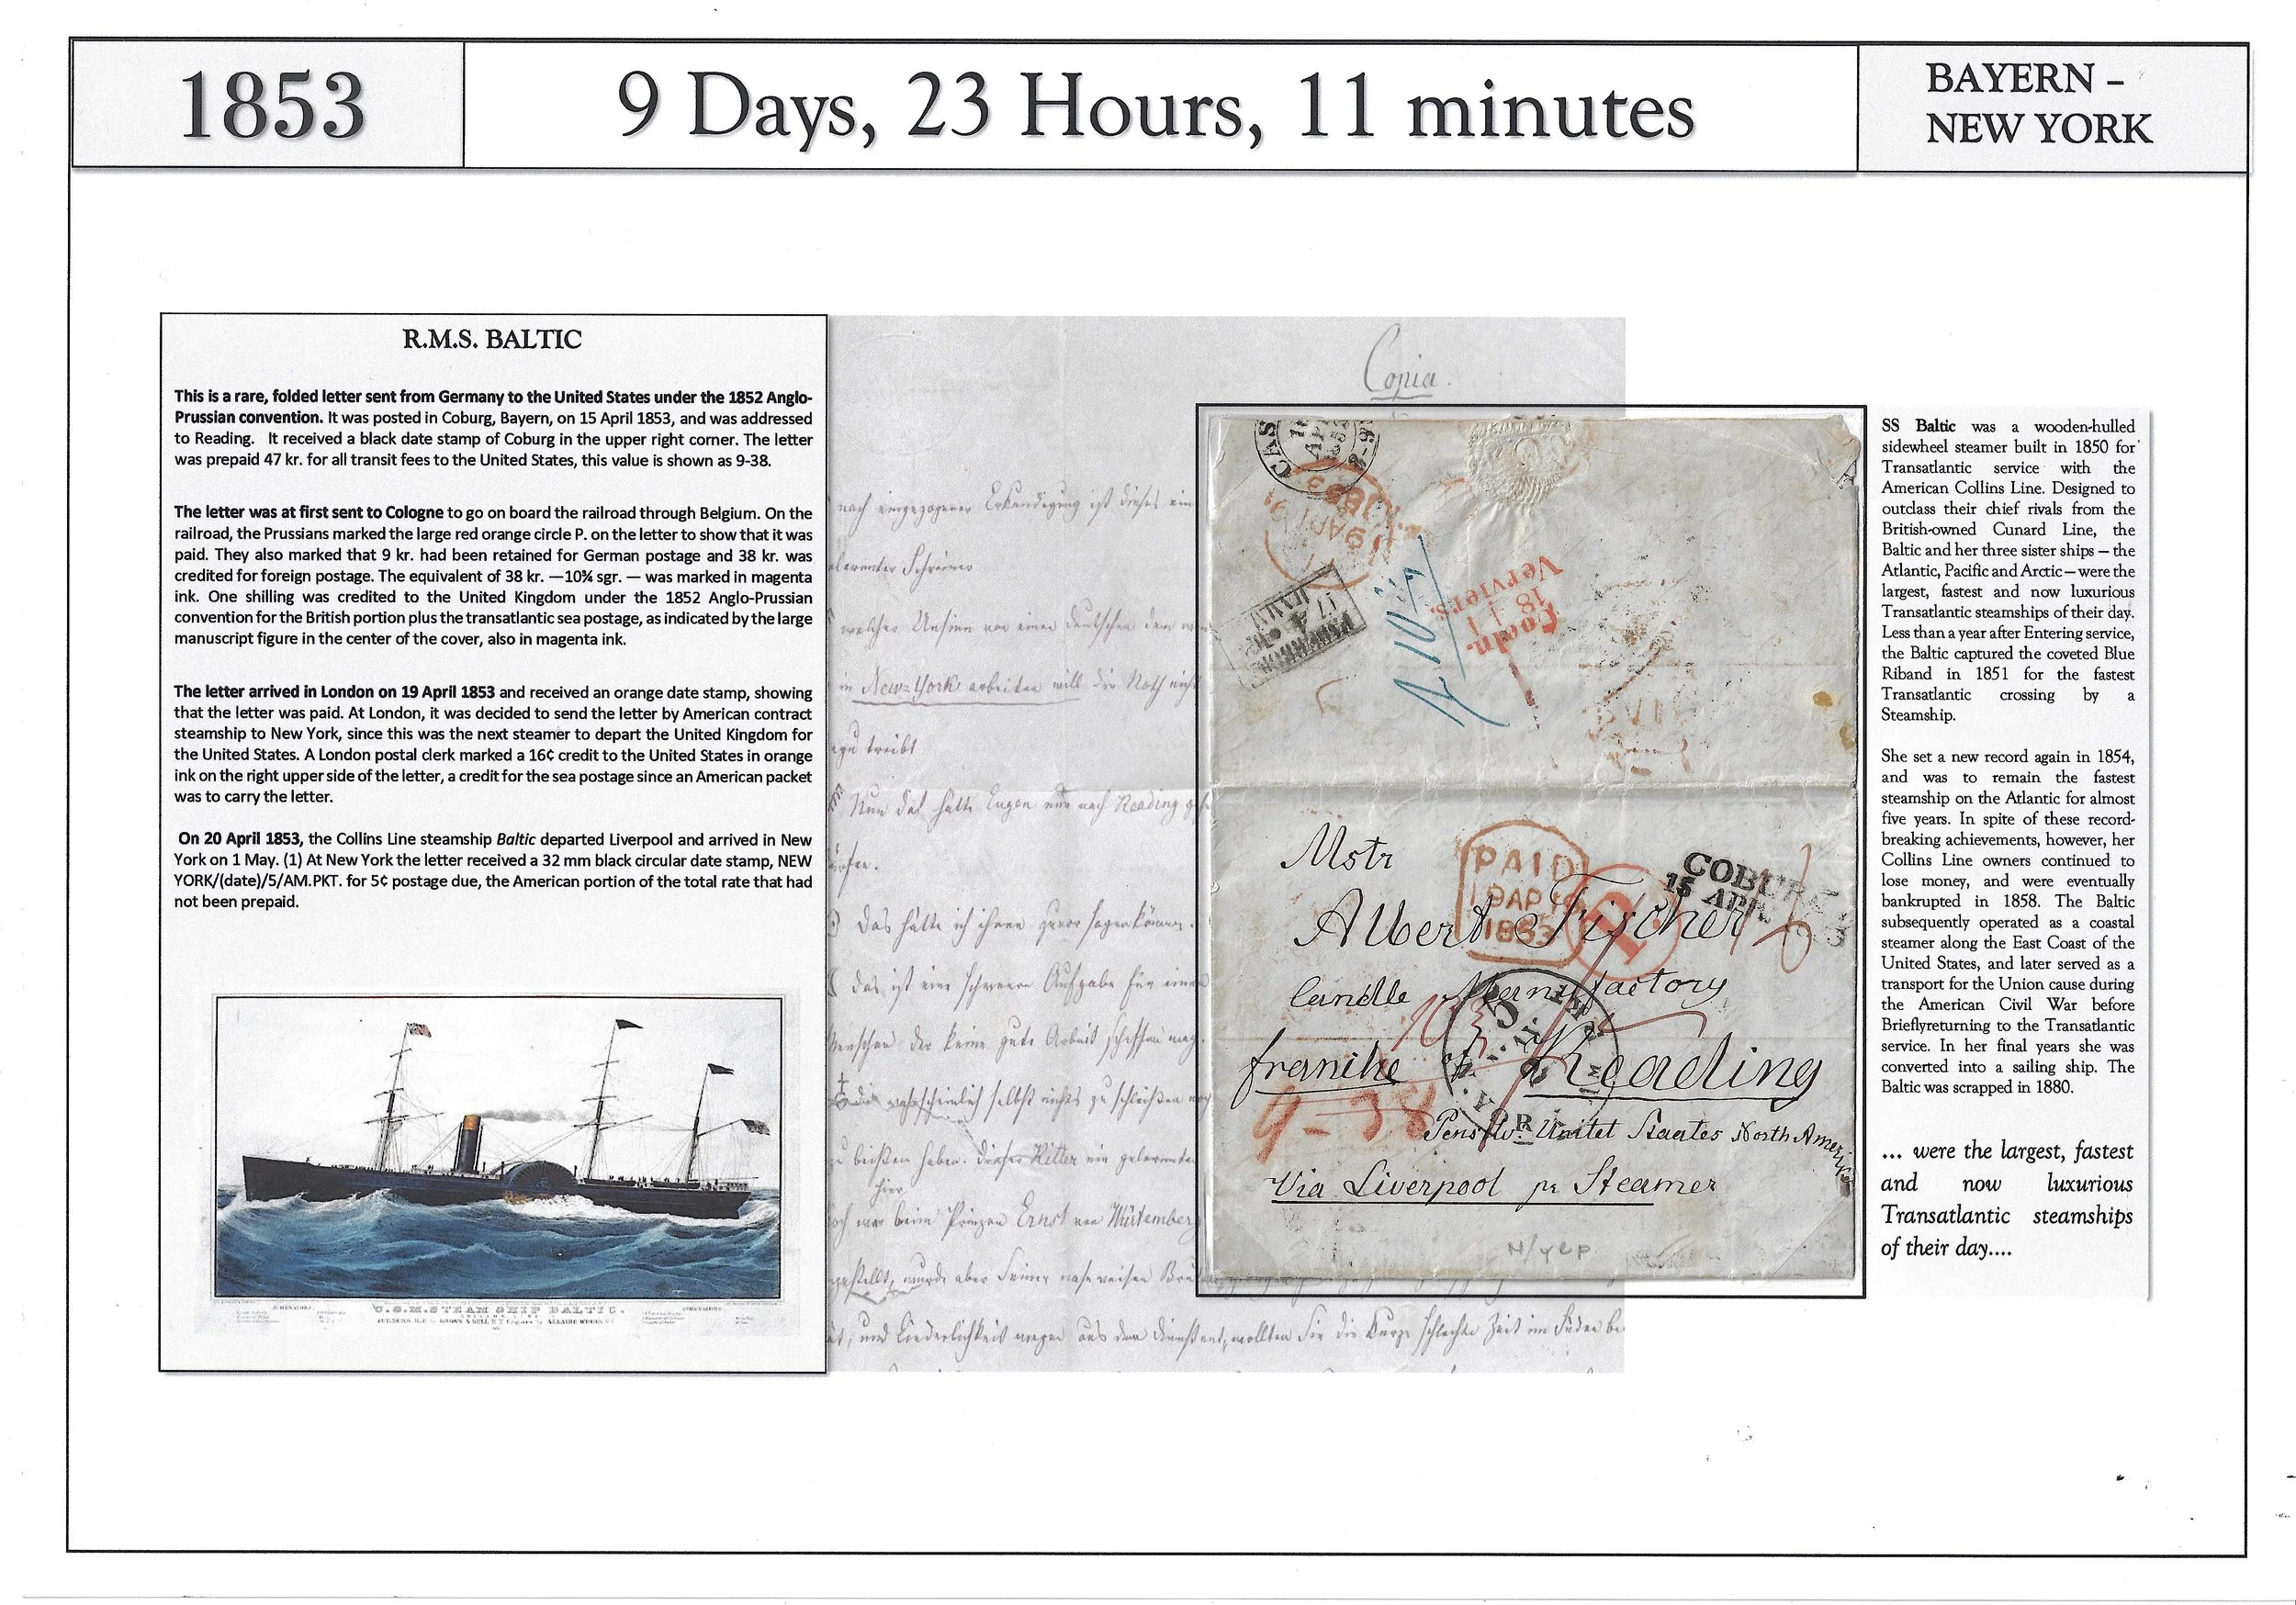 1853
9 Days, 23 Hours, 11 minutes
BAYERN –
NEW YORK
R.M.S. BALTIC
This is a rare, folded letter sent from Germany to the United States under the 1852 Anglo-
Prussian convention. It was posted in Coburg, Bayern, on 15 April 1853, and was addressed
to Reading. It received a black date stamp of Coburg in the upper right corner. The letter
was prepaid 47 kr. for all transit fees to the United States, this value is shown as 9-38.
The letter was at first sent to Cologne to go on board the railroad through Belgium. On the
railroad, the Prussians marked the large red orange circle P. on the letter to show that it was
paid. They also marked that 9 kr. had been retained for German postage and 38 kr. was
credited for foreign postage. The equivalent of 38 kr. —10¾ sgr. — was marked in magenta
ink. One shilling was credited to the United Kingdom under the 1852 Anglo-Prussian
convention for the British portion plus the transatlantic sea postage, as indicated by the large
manuscript figure in the center of the cover, also in magenta ink.
The letter arrived in London on 19 April 1853 and received an orange date stamp, showing
that the letter was paid. At London, it was decided to send the letter by American contract
steamship to New York, since this was the next steamer to depart the United Kingdom for
the United States. A London postal clerk marked a 16¢ credit to the United States in orange
ink on the right upper side of the letter, a credit for the sea postage since an American packet
was to carry the letter.
On 20 April 1853, the Collins Line steamship Baltic departed Liverpool and arrived in New
York on 1 May. (1) At New York the letter received a 32 mm black circular date stamp, NEW
YORK/(date)/5/AM.PKT. for 5¢ postage due, the American portion of the total rate that had
not been prepaid.
U.S.M. STEAM SHIP BALTIC.
Copia.
nach eingezogener Erkundigung ist dieses ein
Schreiner
welcher Unsinn von einem deutschen dem
in New-York arbeiten will die Noth nicht
treibt
Nun das hätte Eugen nur nach Reading
das hätte ich ihnen zuvor sagen können.
das ist eine schwere Aufgabe für einen
Menschen der keine gute Arbeit schaffen mag.
die wahrscheinlich selbst nichts zu schleißen
zu beißen haben. dieser Ritter ein gelernter
hier
beim Prinzen Ernst von Würtemberg
gestellt, wurde aber seiner nase weisen
und Liederlichkeit wegen aus dem dienst entl, wollten Sie die kurze schlechte Zeit im
CAS
19 AP
1853
Coeln.
18 4 I
Verviers.
Mstr
PAID
19 AP
1853
P.
COBURG
15 APR.
Albert Fischer
Candle Manufactory
franike of Reading
9-38
Pensilv. Unitet Staates North Amerika
Via Liverpool pr Steamer
SS Baltic was a wooden-hulled
sidewheel steamer built in 1850 for
Transatlantic service with the
American Collins Line. Designed to
outclass their chief rivals from the
British-owned Cunard Line, the
Baltic and her three sister ships – the
Atlantic, Pacific and Arctic – were the
largest, fastest and now luxurious
Transatlantic steamships of their day.
Less than a year after Entering service,
the Baltic captured the coveted Blue
Riband in 1851 for the fastest
Transatlantic crossing by a
Steamship.
She set a new record again in 1854,
and was to remain the fastest
steamship on the Atlantic for almost
five years. In spite of these record-
breaking achievements, however, her
Collins Line owners continued to
lose money, and were eventually
bankrupted in 1858. The Baltic
subsequently operated as a coastal
steamer along the East Coast of the
United States, and later served as a
transport for the Union cause during
the American Civil War before
Brieflyreturning to the Transatlantic
service. In her final years she was
converted into a sailing ship. The
Baltic was scrapped in 1880.
... were the largest, fastest
and now luxurious
Transatlantic steamships
of their day....